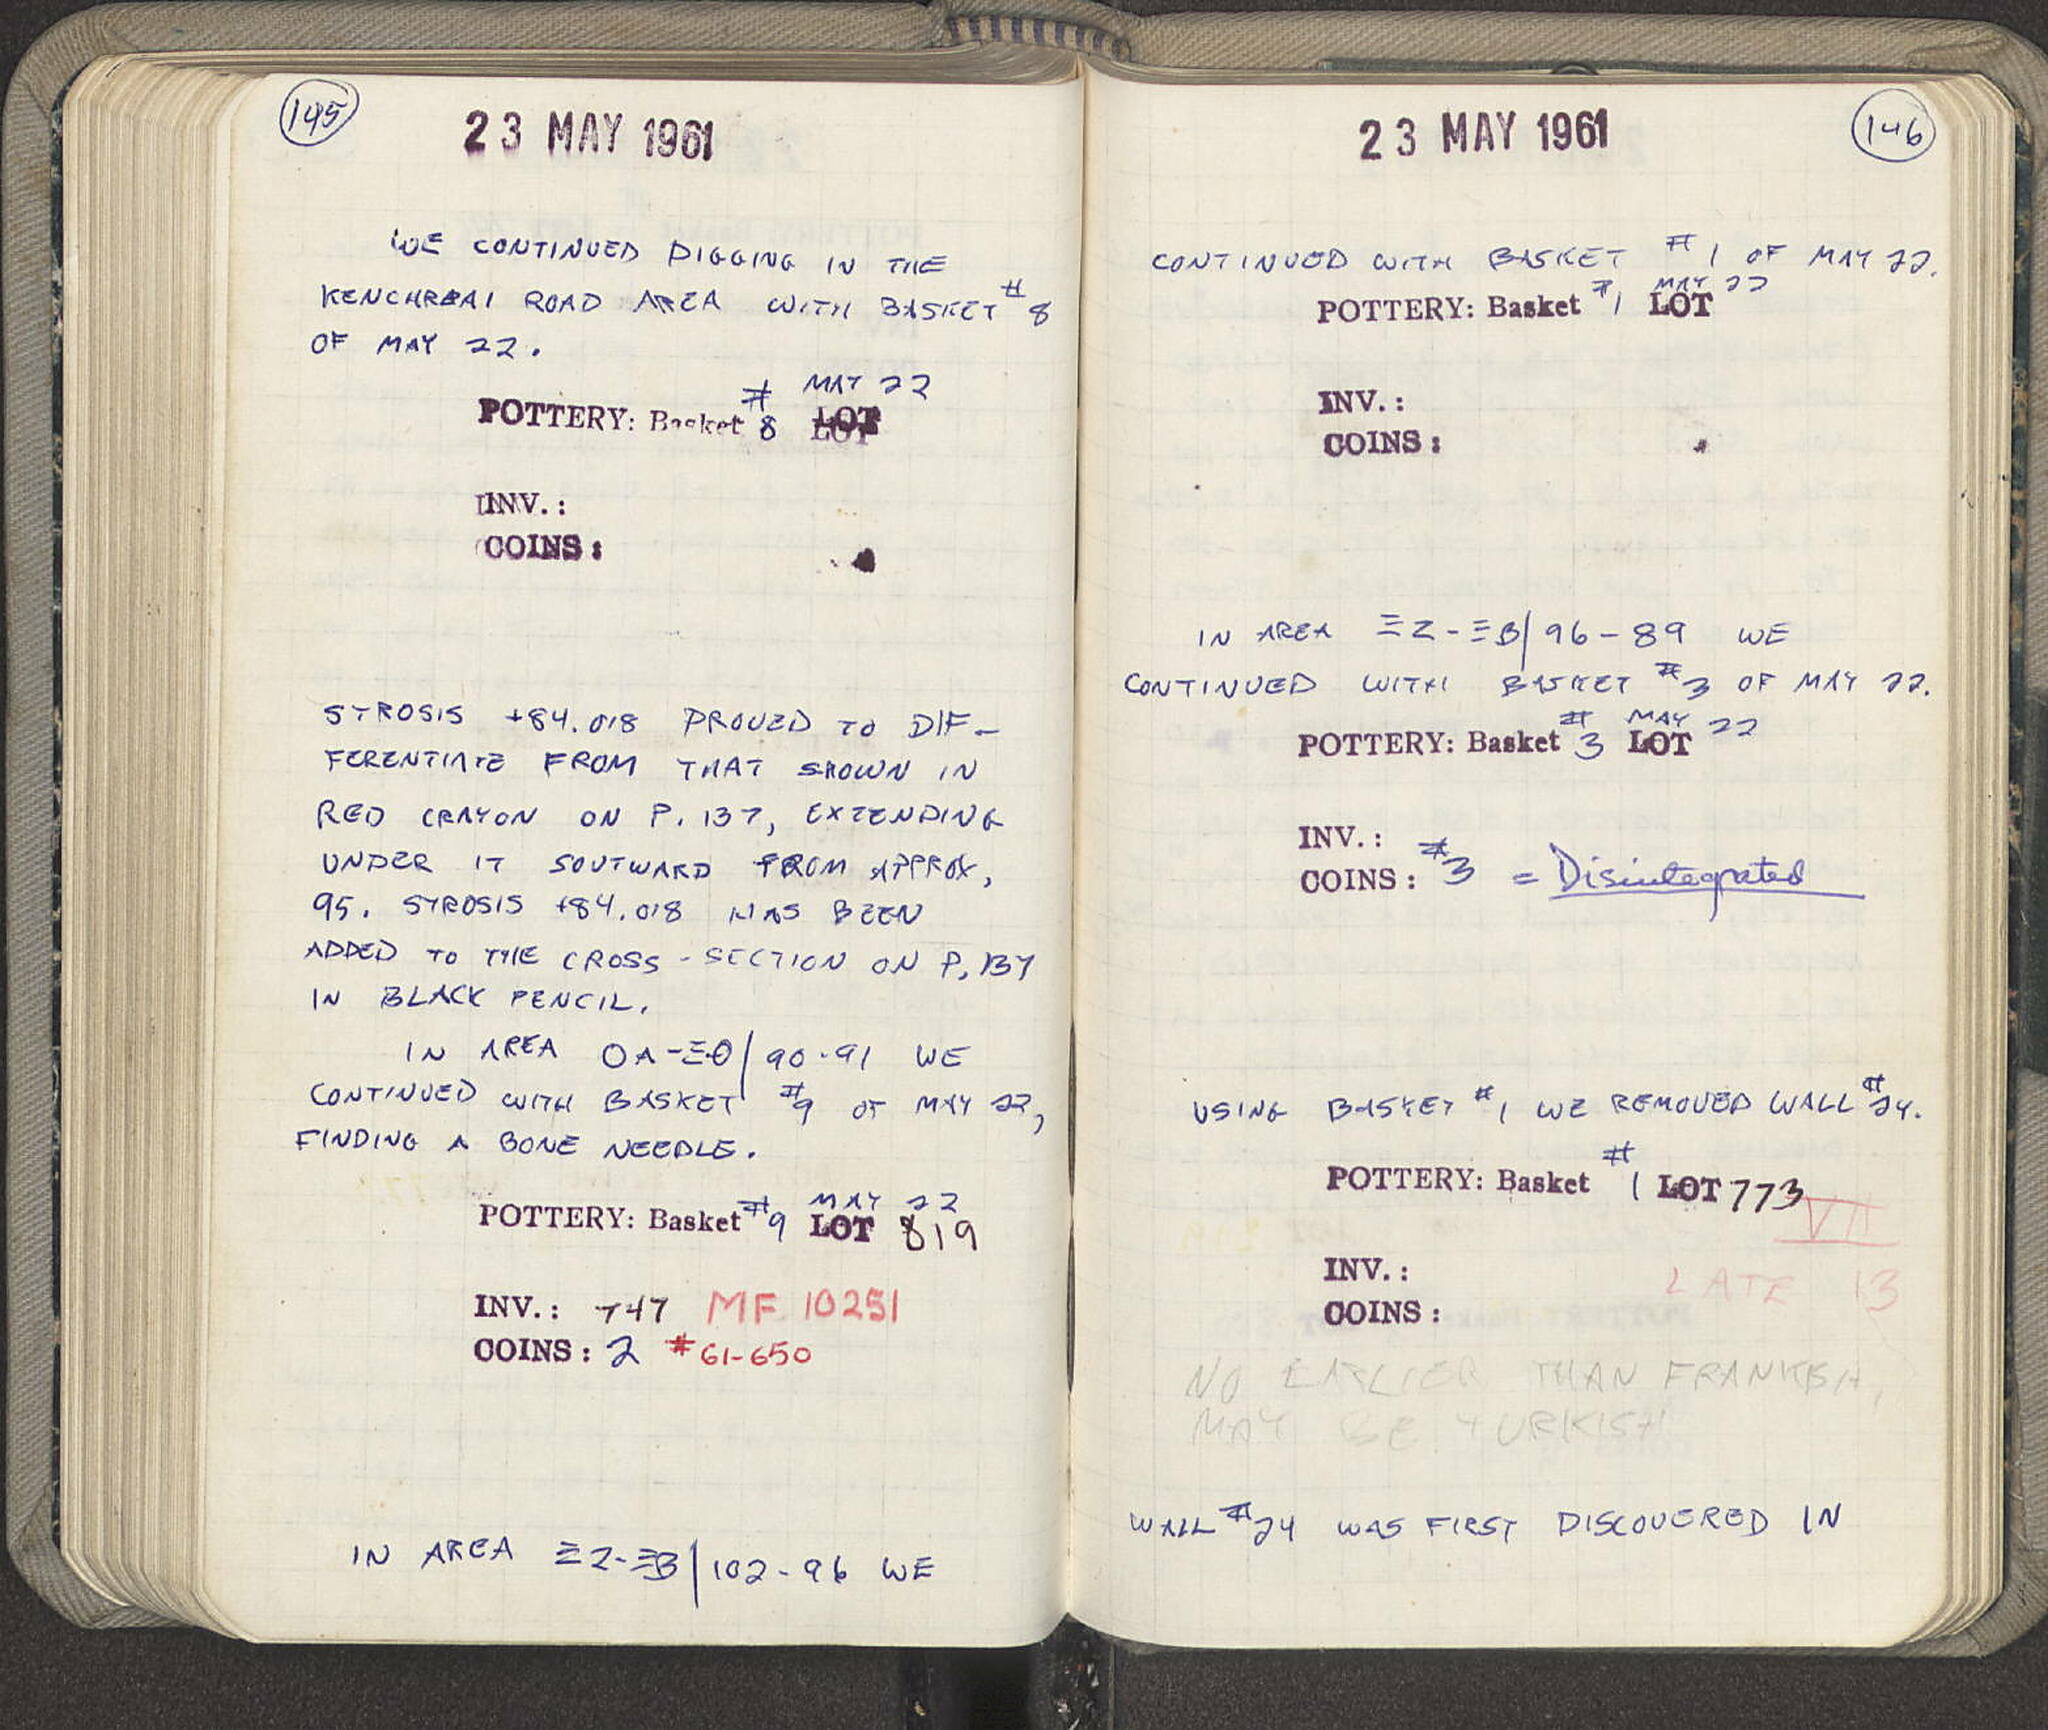 145
23 MAY 1961
WE CONTINUED DIGGING IN THE
KENCHREAI ROAD AREA WITH BASKET #8
OF MAY 22.
POTTERY: Basket #8 LOT MAY 22
INV.:
COINS:
STROSIS +84.018 PROVED TO DIF-
FERENTIATE FROM THAT SHOWN IN
RED CRAYON ON P. 137, EXTENDING
UNDER IT SOUTWARD FROM APPROX,
95. STROSIS +84.018 HAS BEEN
ADDED TO THE CROSS-SECTION ON P. 137
IN BLACK PENCIL.
IN AREA ΟΑ-ΞΘ/90-91 WE
CONTINUED WITH BASKET #9 OF MAY 22,
FINDING A BONE NEEDLE.
POTTERY: Basket #9 MAY 22 LOT 819
INV.: 747 MF 10251
COINS: 2 #61-650
IN AREA ΞΖ-ΞΒ/102-96 WE
146
23 MAY 1961
CONTINUED WITH BASKET #1 OF MAY 22.
POTTERY: Basket #1 MAY 22 LOT
INV.:
COINS:
IN AREA ΞΖ-ΞΒ/96-89 WE
CONTINUED WITH BASKET #3 OF MAY 22.
POTTERY: Basket #3 MAY 22 LOT
INV.:
COINS: #3 = Disintegrated
USING BASKET #1 WE REMOVED WALL #24.
POTTERY: Basket #1 LOT 773
VII
INV.:
LATE 13
COINS:
NO EARLIER THAN FRANKISH,
MAY BE TURKISH
WALL #24 WAS FIRST DISCOVERED IN